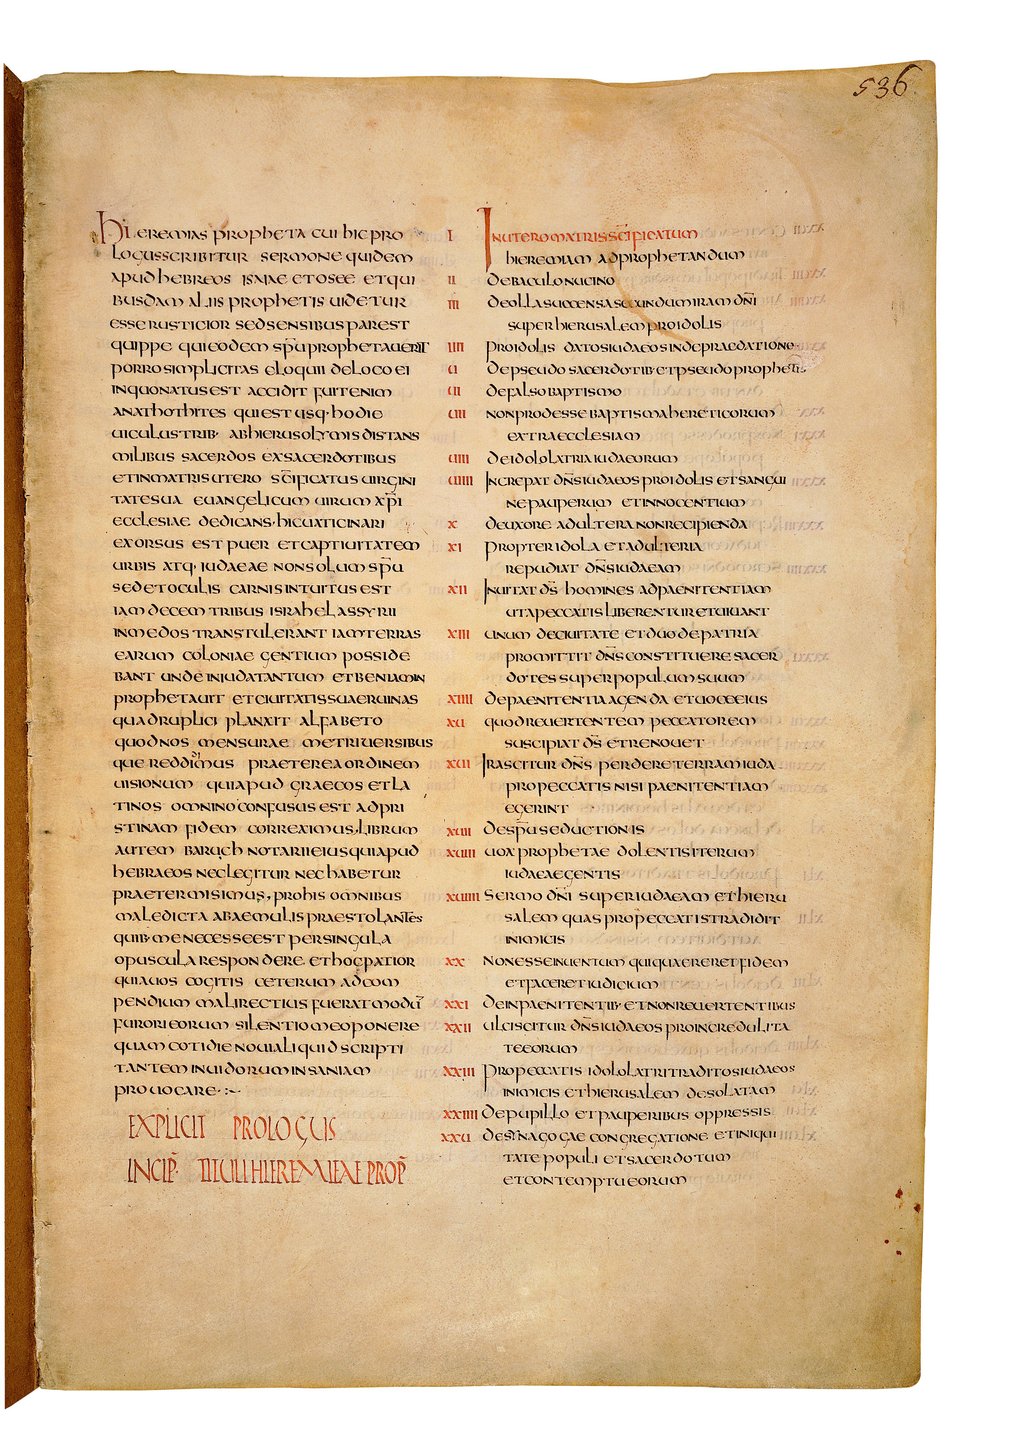 536
Hieremias propheta cui hic pro
logus scribitur sermone quidem
apud hebreos isaiae et osee et qui
busdam aliis prophetis uidetur
esse rusticior sed sensibus par est
quippe qui eodem sp̅u prophetauerit
porro simplicitas eloquii de loco ei
in quo natus est accidit fuit enim
anathothites qui est usq· hodie
uiculus trib· ab hierusolymis distans
milibus sacerdos ex sacerdotibus
et in matris utero sc̅ificatus uirgini
tate sua euangelicum uirum xp̅i
ecclesiae dedicans· hic uaticinari
exorsus est puer et captiuitatem
urbis atq· iudaeae non solum sp̅u
sed et oculis carnis intuitus est
iam decem tribus israhel assyrii
in medos transtulerant iam terras
earum coloniae gentium posside
bant unde in iuda tantum et beniamin
prophetauit et ciuitatis suae ruinas
quadruplici planxit alfabeto
quod nos mensurae metri uersibus
que reddimus praeterea ordinem
uisionum qui apud graecos et la
tinos omnino confusus est ad pri
stinam fidem correximus, librum
autem baruch notarii eius qui apud
hebraeos nec legitur nec habetur
praetermisimus, pro his omnibus
maledicta ab aemulis praestolantes
quib· me necesse est per singula
opuscula respondere et hoc patior
quia uos cogitis ceterum ad com
pendium mali rectius fuerat modū
furori eorum silentio meo ponere
quam cotidie noui aliquid scripti
tantem inuidorum insaniam
prouocare·:~
EXPLICIT PROLOGUS
INCIP̅· TITULI HIEREMIAE PROP̅
I In utero matris sc̅ificatum
hieremiam ad prophetandum
II de baculo nucino
III de olla succensa secundum iram dn̅i
super hierusalem pro idolis
IIII Pro idolis datos iudaeos in depraedatione
U de pseudo sacerdotib· et pseudo prophetis
UI de falso baptismo
UII non prodesse baptisma hereticorum
extra ecclesiam
UIII de idololatria iudaeorum
UIIII Increpat dn̅s iudaeos pro idolis et sangui
ne pauperum et innocentium
X de uxore adultera non recipienda
XI Propter idola et adulteria
repudiat dn̅s iudaeam
XII Inuitat dn̅s homines ad paenitentiam
ut a peccatis liberentur et uiuant
XIII unum de ciuitate et duo de patria
promittit dn̅s constituere sacer
dotes super populum suum
XIIII de paenitentia agenda et uoce eius
XU quod reuertentem peccatorem
suscipiat ds̅ et renouet
XUI Irascitur dn̅s perdere terram iuda
pro peccatis nisi paenitentiam
egerint
XUII de sp̅u seductionis
XUIII uox prophetae dolentis iterum
iudaeae gentis
XUIIII Sermo dn̅i super iudaeam et hieru
salem quas pro peccatis tradidit
inimicis
XX Non esse inuentum qui quaereret fidem
et faceret iudicium
XXI de inpaenitentib· et non reuertentibus
XXII ulciscitur dn̅s iudaeos pro incredulita
te eorum
XXIII Pro peccatis idololatri traditos iudaeos
inimicis et hierusalem desolatam
XXIIII de pupillo et pauperibus oppressis
XXU de synagogae congregatione et iniqui
tate populi et sacerdotum
et contemptu eorum